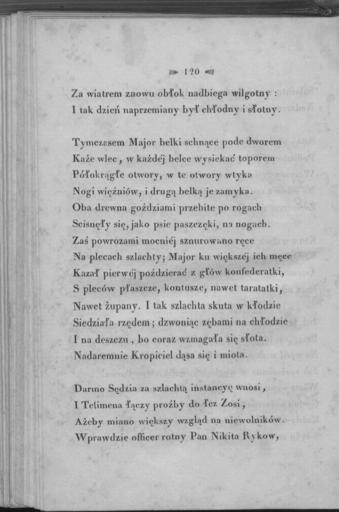 120
Za wiatrem znowu obłok nadbiega wilgotny :
I tak dzień naprzemiany był chłodny i słotny.
Tymczasem Major belki schnące pode dworem
Każe wlec, w każdéj belce wysiekać toporem
Półokrągłe otwory, w te otwory wtyka
Nogi więźniów, i drugą belką je zamyka.
Oba drewna goździami przebite po rogach
Scisnęły się, jako psie paszczęki, na nogach.
Zaś powrozami mocniéj sznurowano ręce
Na plecach szlachty; Major ku większéj ich męce
Kazał pierwéj pozdzierać z głów konfederatki,
S pleców płaszcze, kontusze, nawet taratatki,
Nawet żupany. I tak szlachta skuta w kłodzie
Siedziała rzędem; dzwoniąc zębami na chłodzie
I na deszczu, bo coraz wzmagała się słota.
Nadaremnie Kropiciel dąsa się i miota.
Darmo Sędzia za szlachtą instancyę wnosi,
I Telimena łączy proźby do łez Zosi,
Ażeby miano większy wzgląd na niewolników.
Wprawdzie officer rotny Pan Nikita Rykow,